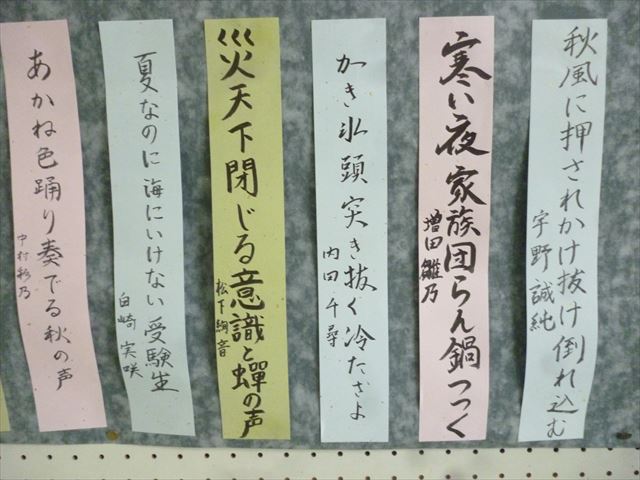 秋風に押されかけ抜け倒れ込む
宇野誠純
寒い夜家族団らん鍋つつく
増田雛乃
かき氷頭突き抜く冷たさよ
内田千尋
災天下閉じる意識と蟬の声
松下絢音
夏なのに海にいけない受験生
白崎実咲
あかね色踊り奏でる秋の声
中村彩乃